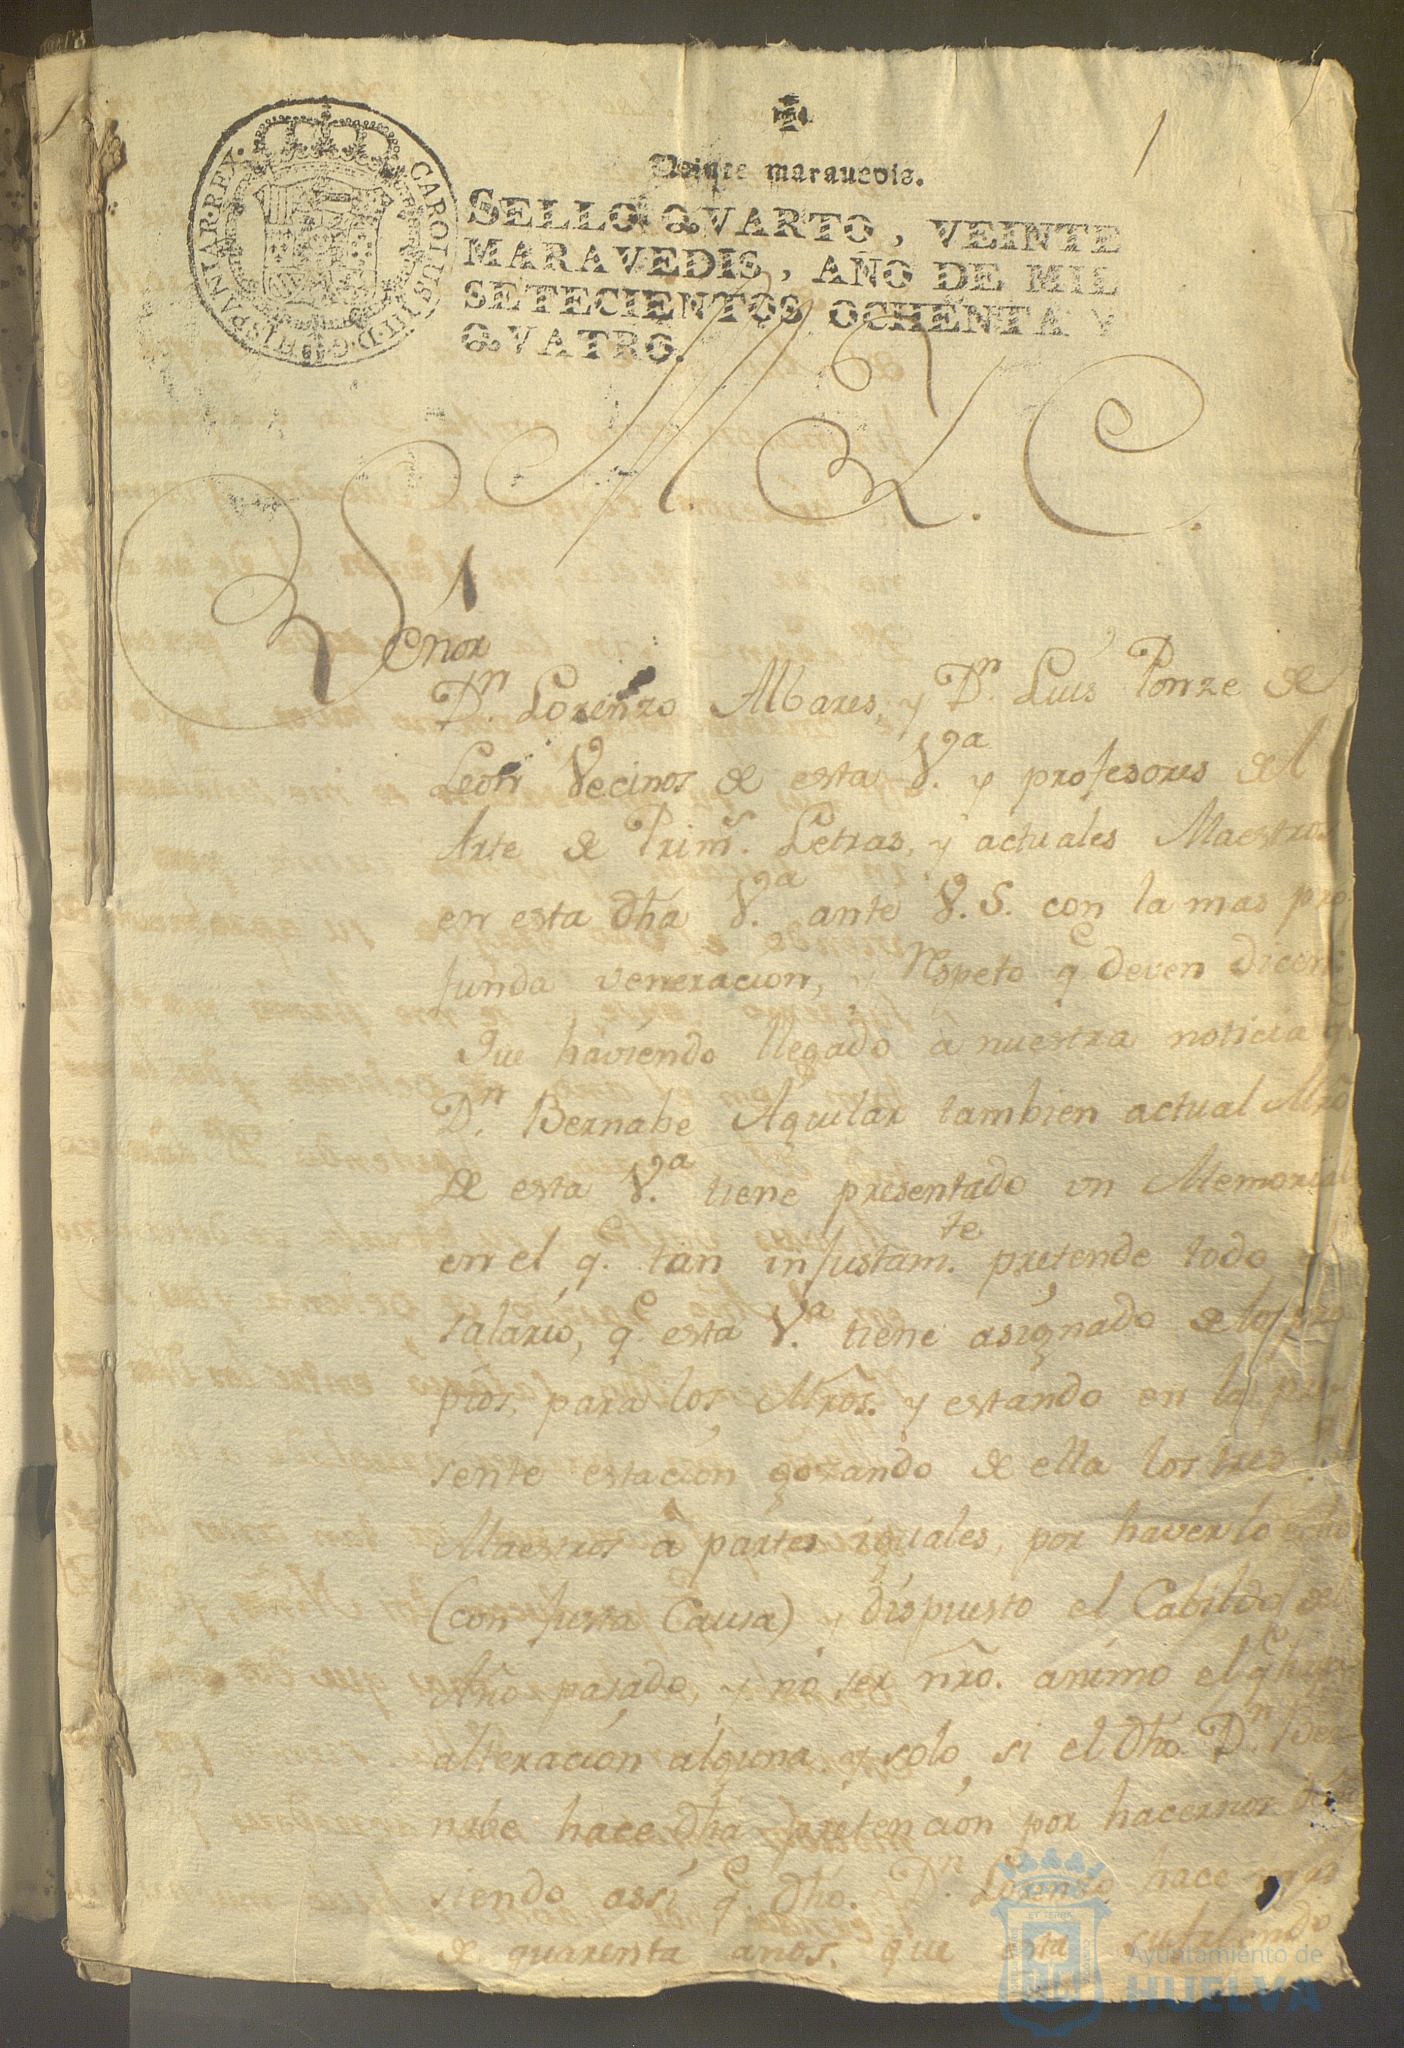 1
Veinte maravedis.
SELLO QVARTO, VEINTE
MARAVEDIS, AÑO DE MIL
SETECIENTOS OCHENTA Y
QVATRO.
CAROLUS·III·D·G·HISPANIAR·REX·
M. Y. C.
Señor
Dn. Lorenzo Albares, y Dn. Luis Ponze de
Leon Vecinos de esta V.a y profesores del
Arte de Prims. Letras, y actuales Maestros
en esta dha V.a ante V.S. con la mas pro
funda veneracion, y Respeto q.e deven dicen:
Que haviendo llegado à nuestra noticia q.
Dn. Bernabe Aguilar tambien actual Mro
de esta V.a tiene presentado un Memorial
en el q. tan injustam.te pretende todo
salario, q.e esta V.a tiene asignado de los pro
pios, para los Mros. y estando en la pre
sente estacion gozando de ella los tres
Maestros à partes iguales, por haverlo echo
(con Justa Causa) y dispuesto el Cabildo del
Año pasado, y no ser nro. animo el q.e haya
alteracion alguna y solo si el dho. Dn. Ber-
nabe hace dha pretencion por hacernos
siendo assi q.e dho. Dn. Lorenzo hace mas
de quarenta años. que està
Ayuntamiento de
HUELVA